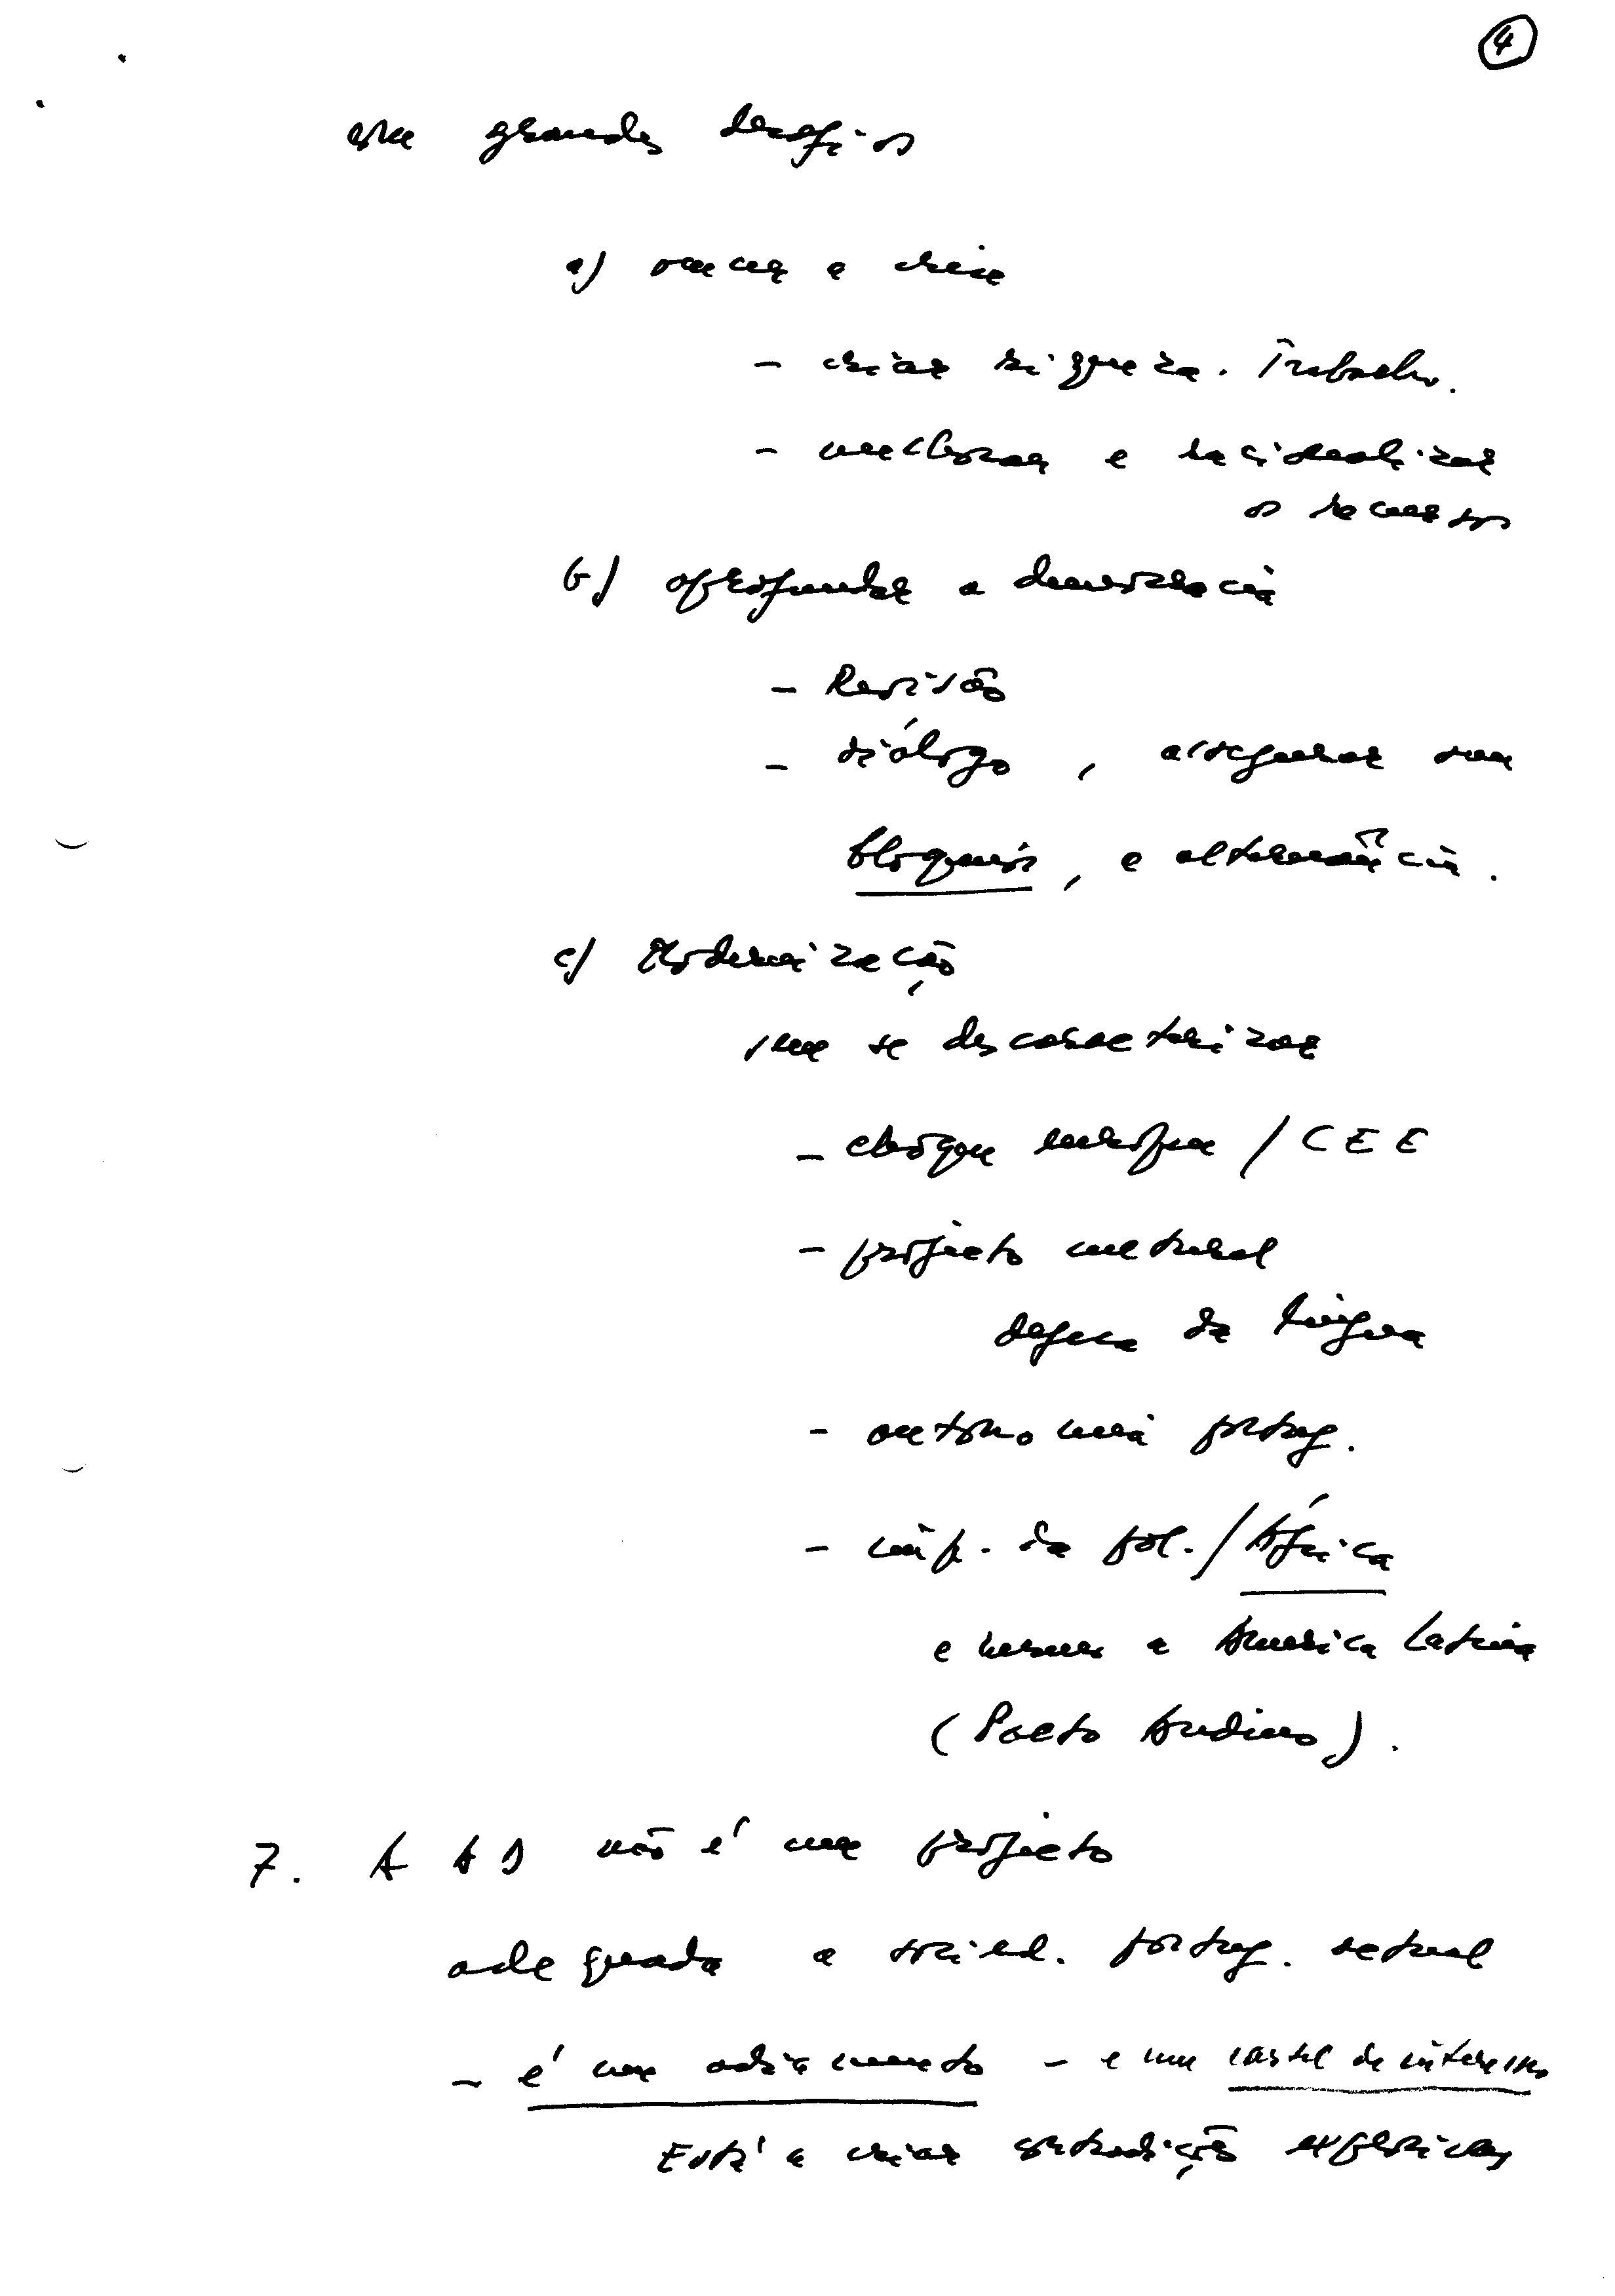 4
grandes desafios
a) vencer a crise
- criar riqueza. Trabalho.
- melhorar e racionalizar
os recursos
b) aprofundar a democracia
- Revisão
- diálogo, assegurar sem
bloqueios, e alternância.
c) Modernização
sem se descaracterizar
- choque europeu / CEE
- projecto cultural
defesa da língua
- autonomia portug.
- imp. da pol. / África
e mesmo a America Latina
(Pacto Andino).
7. A AD não é um projecto
adequada a socied. portug. actual
- é um adiamento - e um cartel de interesses
Está a criar contradições explosivas